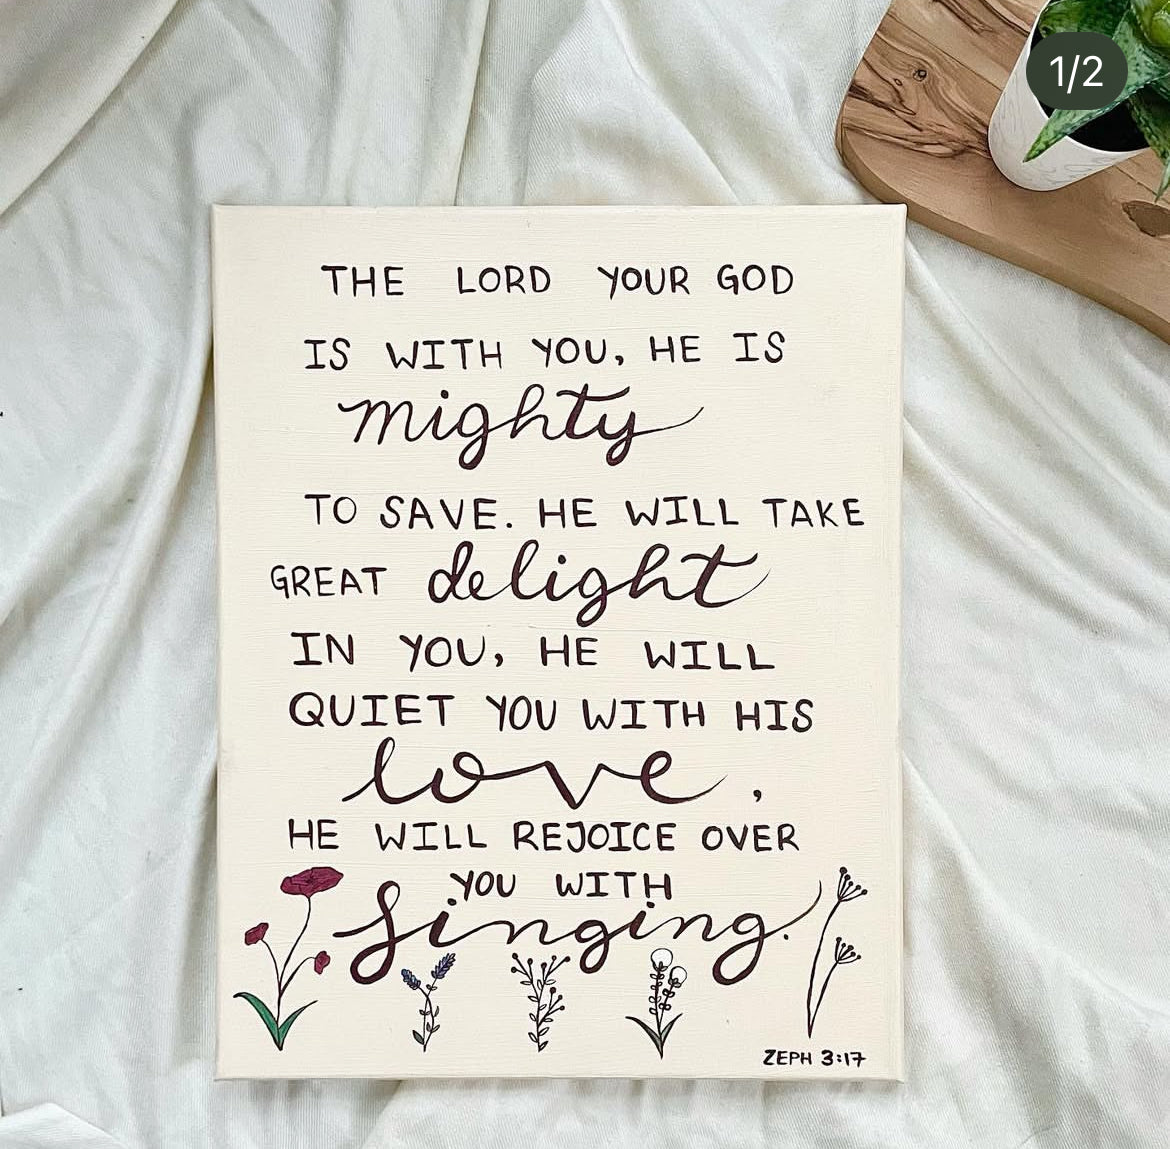 1/2
THE LORD YOUR GOD
IS WITH YOU, HE IS
mighty
TO SAVE. HE WILL TAKE
GREAT delight
IN YOU, HE WILL
QUIET YOU WITH HIS
love,
HE WILL REJOICE OVER
YOU WITH
singing.
ZEPH 3:17